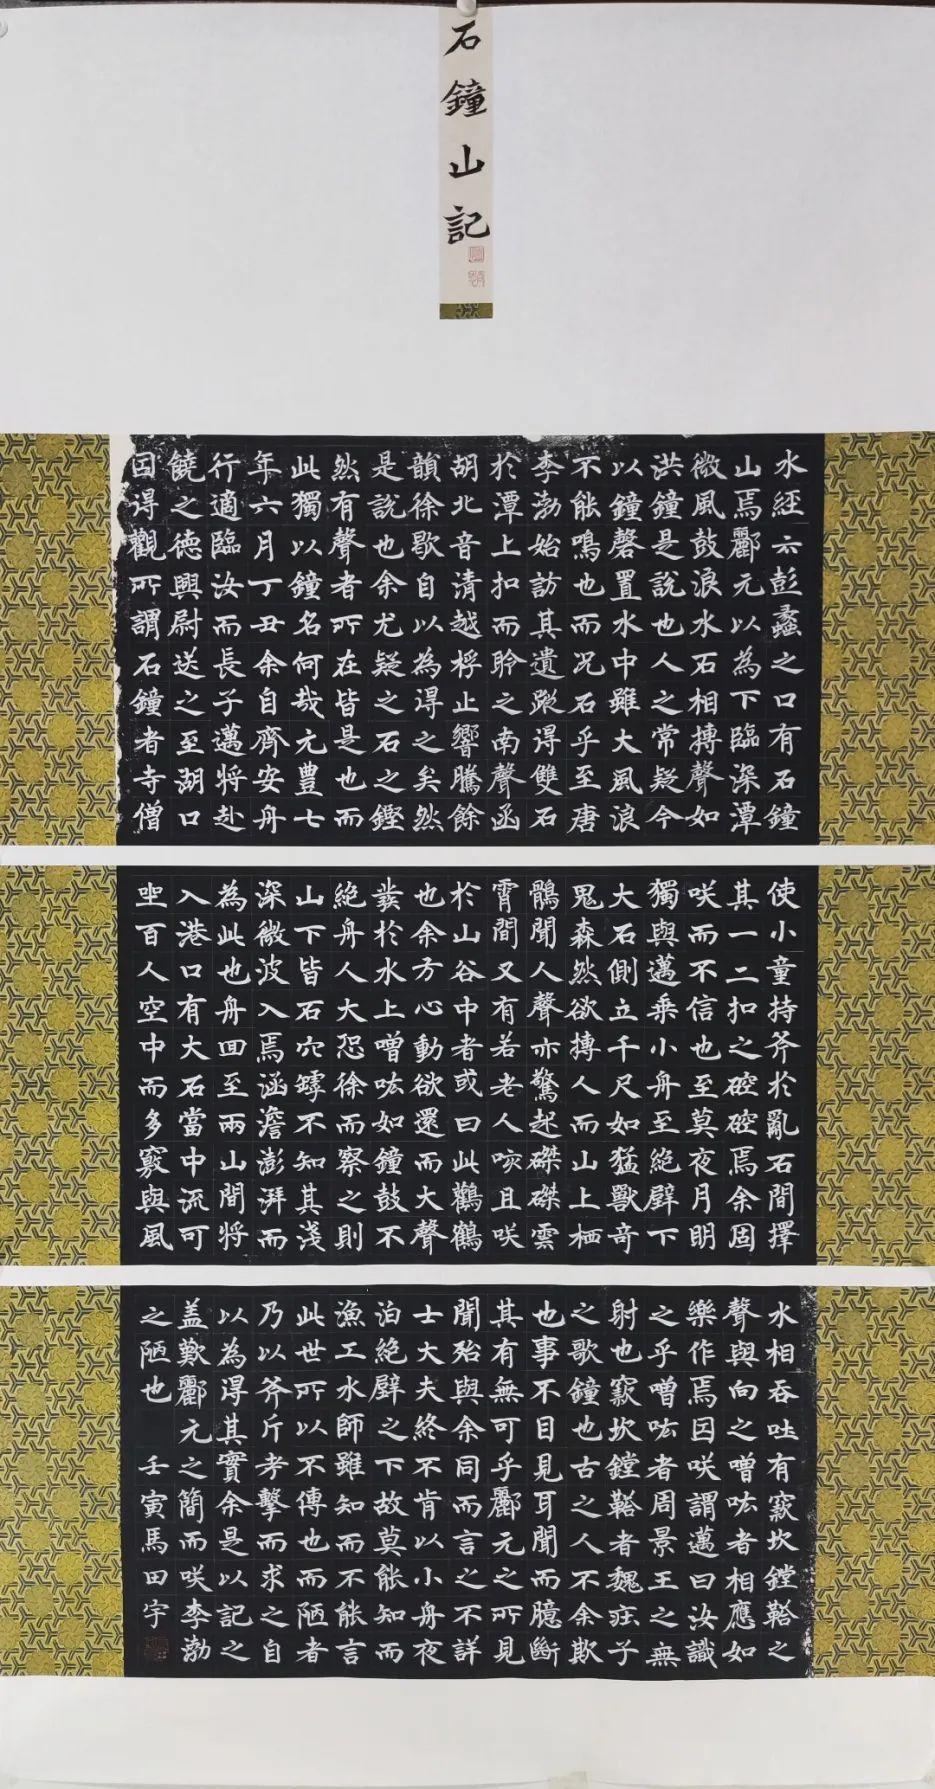 石鐘山記
水經云彭蠡之口有石鐘
山焉酈元以為下臨深潭
微風鼓浪水石相搏聲如
洪鐘是說也人之常疑今
以鐘磬置水中雖大風浪
不能鳴也而況石乎至唐
李渤始訪其遺蹤得雙石
於潭上扣而聆之南聲函
胡北音清越桴止響騰餘
韻徐歇自以為得之矣然
是說也余尤疑之石之鏗
然有聲者所在皆是也而
此獨以鐘名何哉元豊七
年六月丁丑余自齊安舟
行適臨汝而長子邁將赴
饒之德興尉送之至湖口
因得觀所謂石鐘者寺僧
使小童持斧於亂石間擇
其一二扣之硿硿焉余固
咲而不信也至莫夜月明
獨與邁乘小舟至絕壁下
大石側立千尺如猛獸奇
鬼森然欲搏人而山上栖
鶻聞人聲亦驚起磔磔雲
霄間又有若老人咳且咲
於山谷中者或曰此鸛鶴
也余方心動欲還而大聲
發於水上噌吰如鐘鼓不
絕舟人大恐徐而察之則
山下皆石穴罅不知其淺
深微波入焉涵澹澎湃而
為此也舟回至兩山間將
入港口有大石當中流可
坐百人空中而多竅與風
水相吞吐有窾坎鏜鞳之
聲與向之噌吰者相應如
樂作焉因咲謂邁曰汝識
之乎噌吰者周景王之無
射也窾坎鏜鞳者魏莊子
之歌鐘也古之人不余欺
也事不目見耳聞而臆斷
其有無可乎酈元之所見
聞殆與余同而言之不詳
士大夫終不肯以小舟夜
泊絕壁之下故莫能知而
漁工水師雖知而不能言
此世所以不傳也而陋者
乃以斧斤考擊而求之自
以為得其實余是以記之
盖歎酈元之簡而咲李渤
之陋也 壬寅馬田宇